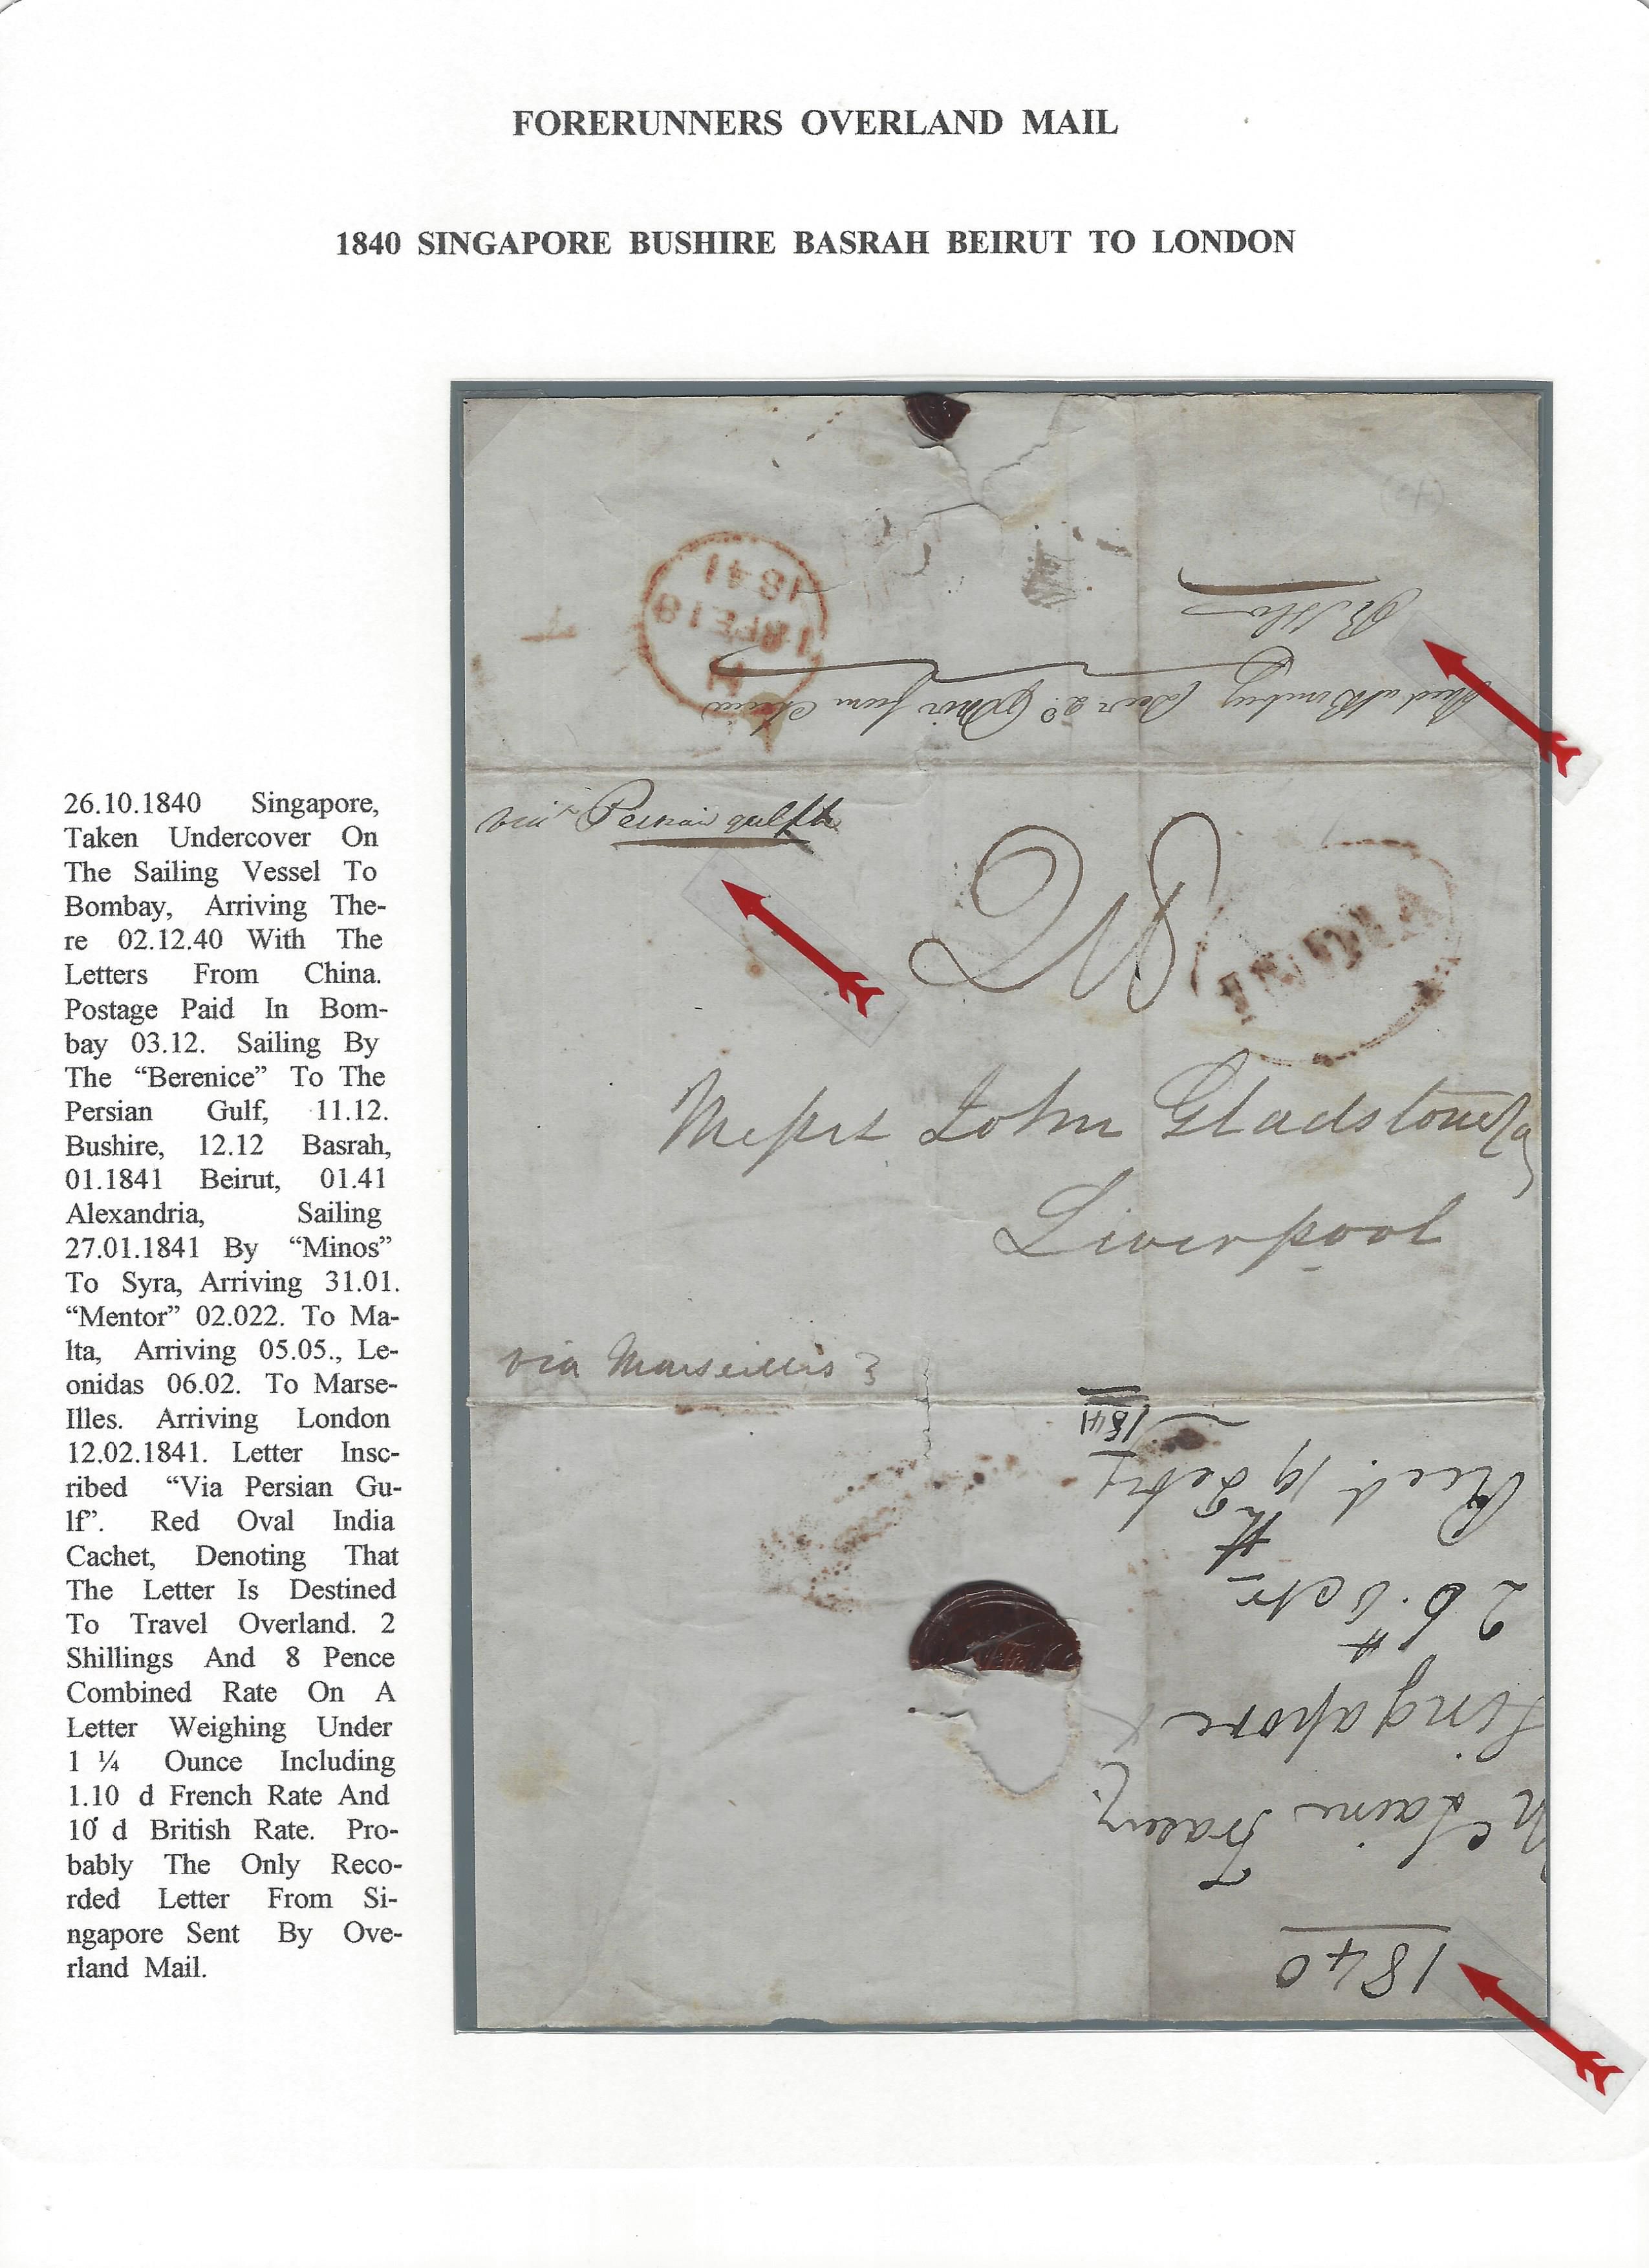 FORERUNNERS OVERLAND MAIL
1840 SINGAPORE BUSHIRE BASRAH BEIRUT TO LONDON
26.10.1840 Singapore,
Taken Undercover On
The Sailing Vessel To
Bombay, Arriving The-
re 02.12.40 With The
Letters From China.
Postage Paid In Bom-
bay 03.12. Sailing By
The “Berenice” To The
Persian Gulf, 11.12.
Bushire, 12.12 Basrah,
01.1841 Beirut, 01.41
Alexandria, Sailing
27.01.1841 By “Minos”
To Syra, Arriving 31.01.
“Mentor” 02.022. To Ma-
lta, Arriving 05.05., Le-
onidas 06.02. To Marse-
Illes. Arriving London
12.02.1841. Letter Insc-
ribed “Via Persian Gu-
lf”. Red Oval India
Cachet, Denoting That
The Letter Is Destined
To Travel Overland. 2
Shillings And 8 Pence
Combined Rate On A
Letter Weighing Under
1 ¼ Ounce Including
1.10 d French Rate And
10 d British Rate. Pro-
bably The Only Reco-
rded Letter From Si-
ngapore Sent By Ove-
rland Mail.
1841
18 FE 18
Bombay from China
via Persian gulph
2/8
INDIA
Messrs John Gladstone & Co
Liverpool
via Marseilles
1840
McLaine Fraser
Singapore
26th Octr
Recd. 19th Feby
1841